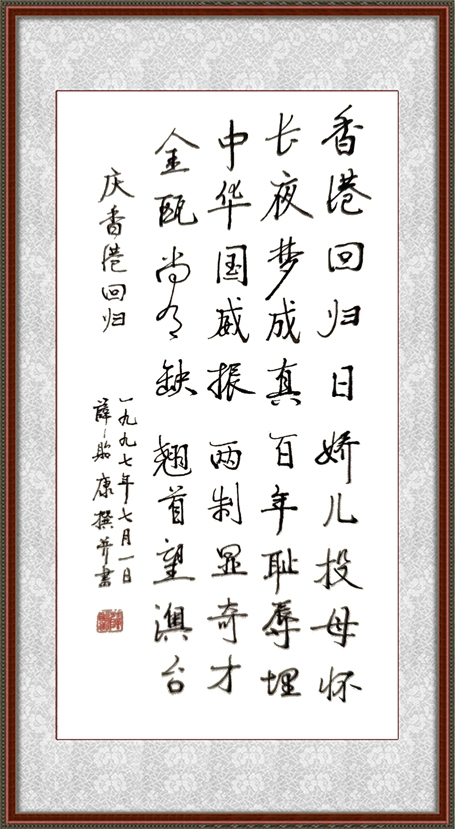 香港回归日 娇儿投母怀
长夜梦成真 百年耻辱埋
中华国威振 两制显奇才
金瓯尚有缺 翘首望澳台
庆香港回归
一九九七年七月一日
薛 康撰并书